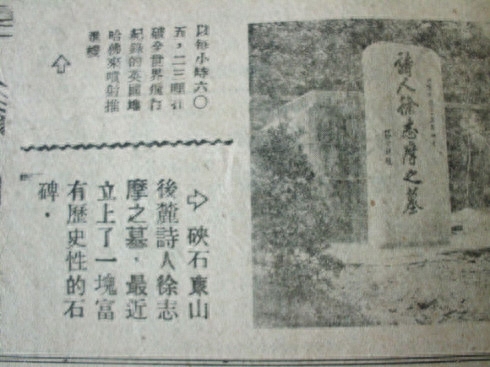 詩人徐志摩之墓
以每小時六〇
五，二三哩打
破全世界飛行
紀錄的英國地
哈佛來噴射推
⇨ 硤石東山
後麓詩人徐志
摩之墓，最近
立上了一塊富
有歷史性的石
碑．